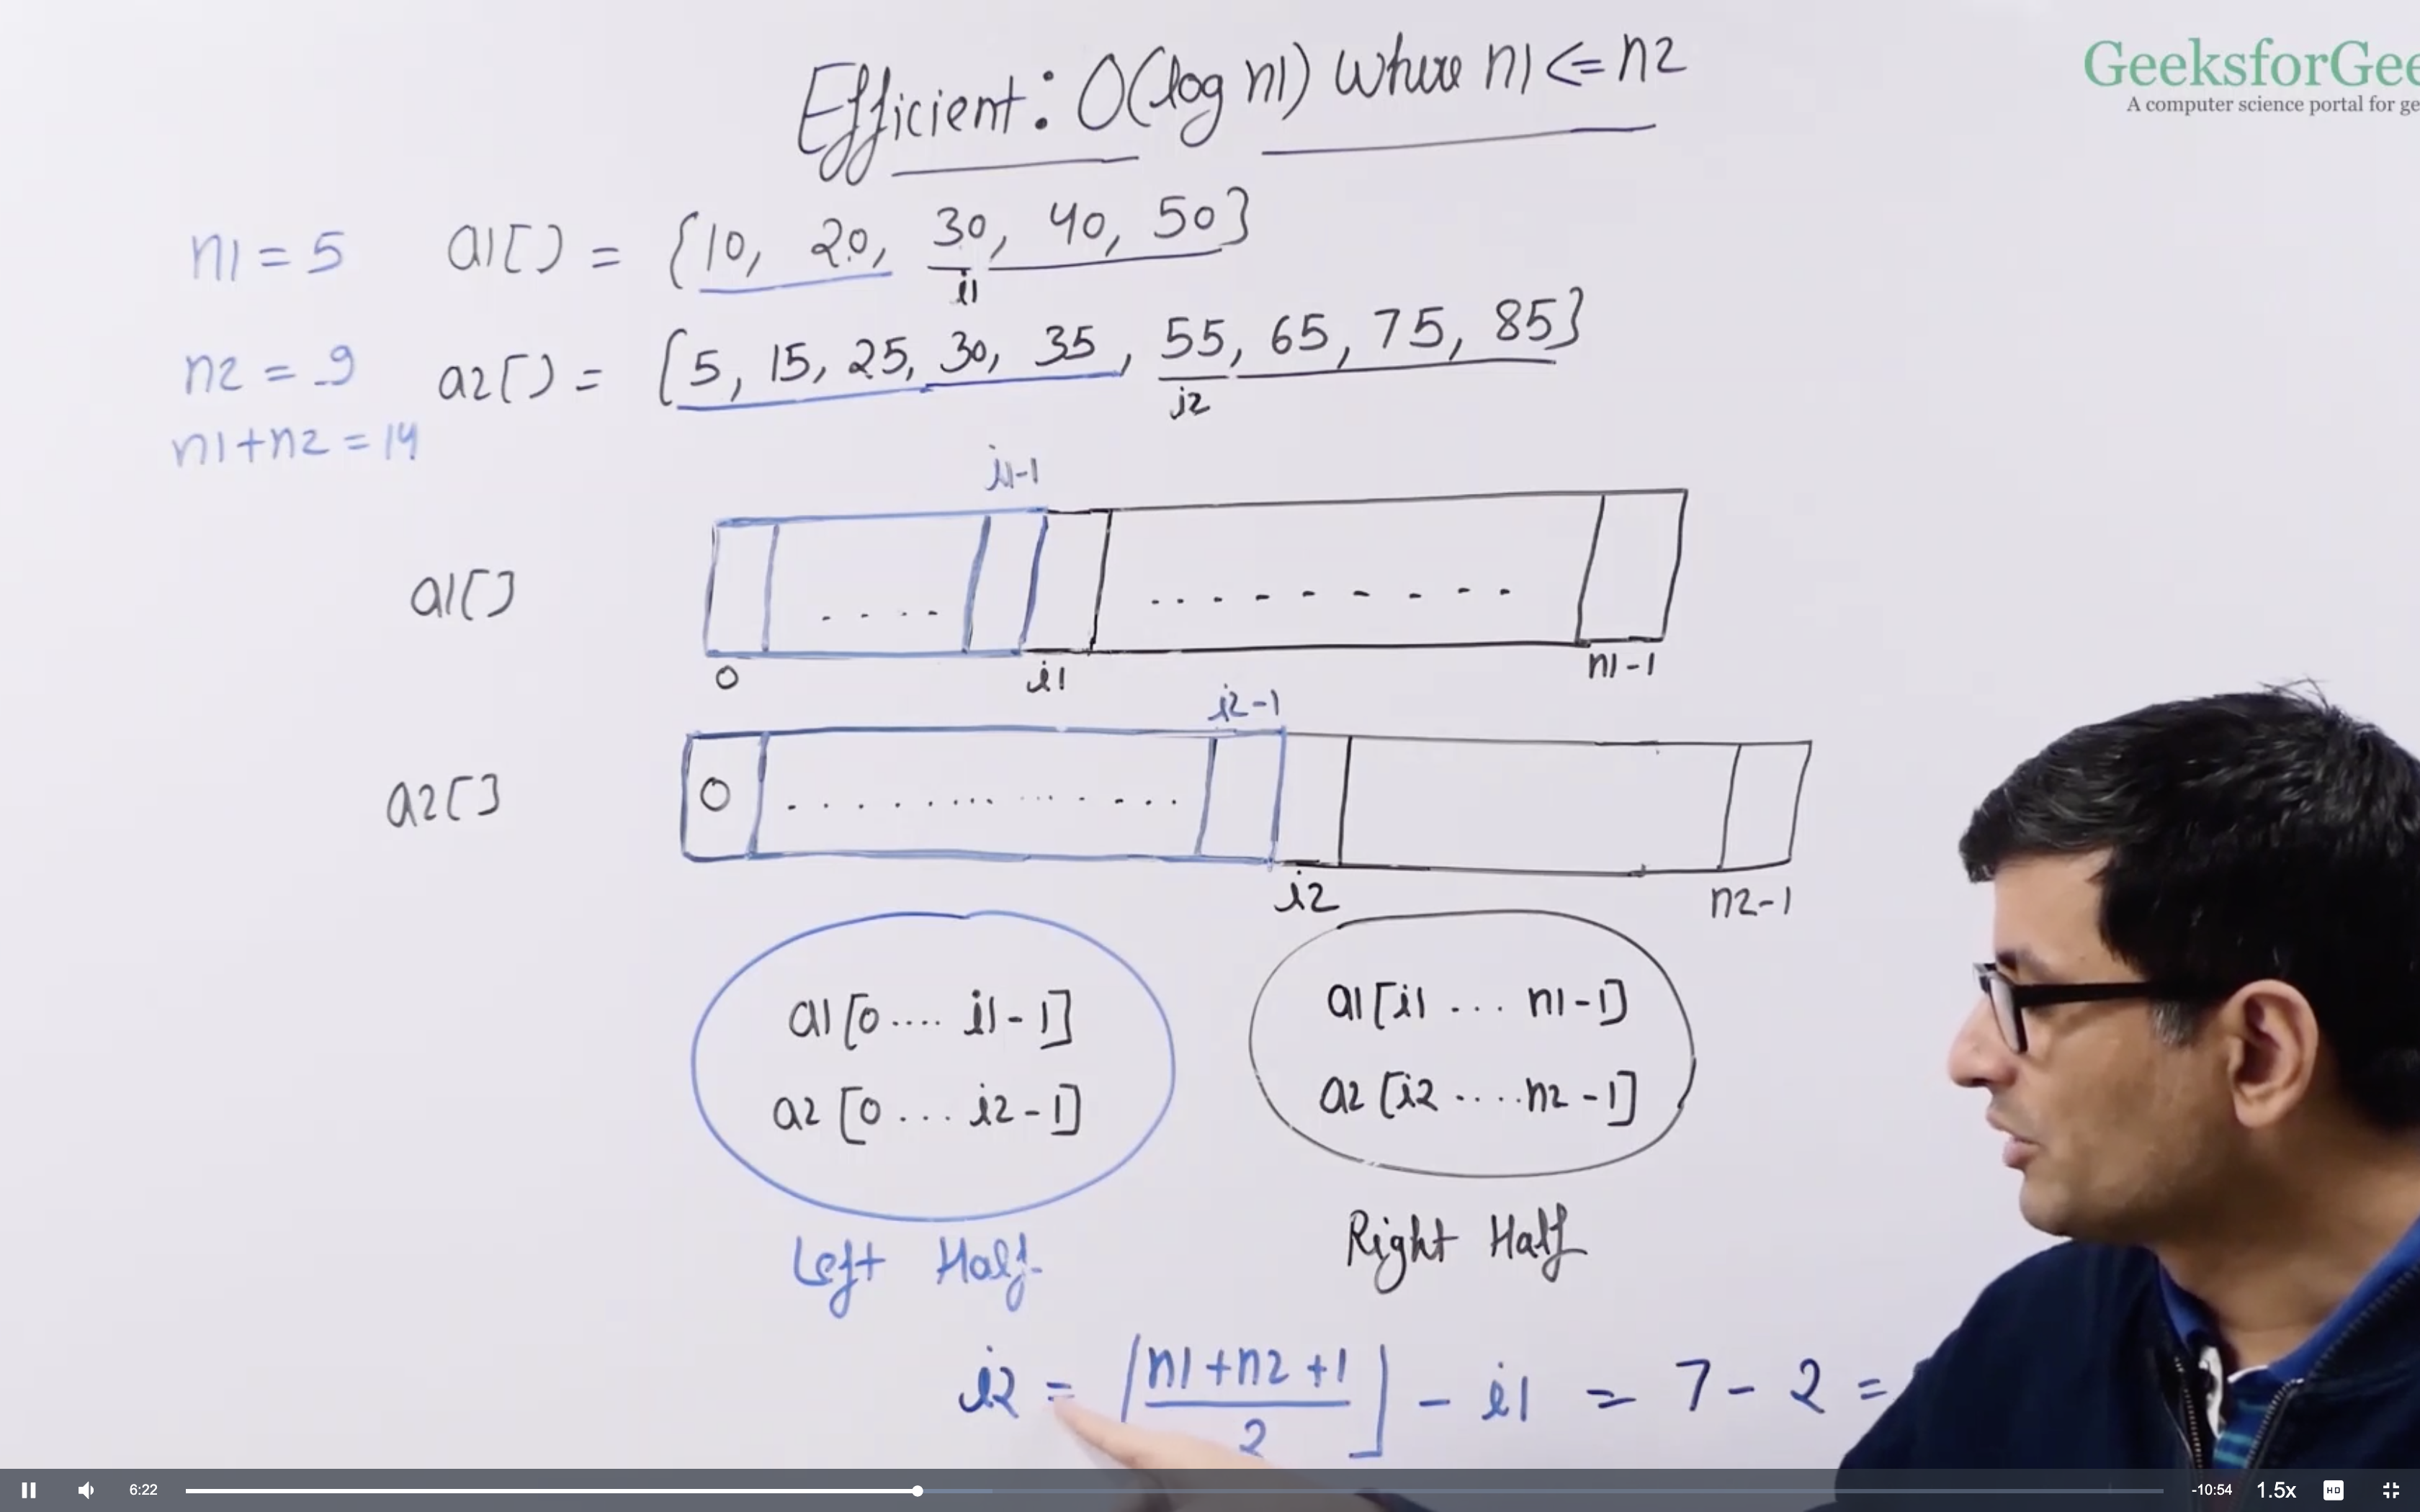 Efficient: O(log n1) where n1 <= n2
GeeksforGee
A computer science portal for ge
n1 = 5 a1[] = {10, 20, 30, 40, 50}
i1
n2 = 9 a2[] = {5, 15, 25, 30, 35, 55, 65, 75, 85}
i2
n1+n2 = 14
i1-1
a1[]
0 i1 n1-1
i2-1
a2[] 0
i2 n2-1
a1[0 .... i1-1] a1[i1 ... n1-1]
a2[0 ... i2-1] a2[i2 .... n2-1]
Left Half Right Half
i2 = ⌊(n1+n2+1)/2⌋ - i1 = 7 - 2 =
6:22 -10:54 1.5x HD